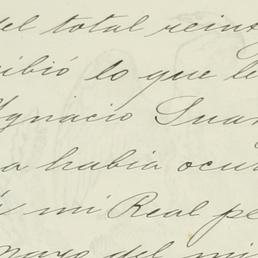 del total reins
cibió lo que le
Ygnacio Suar
a habia ocur
á mi Real pe
Mayo del mi